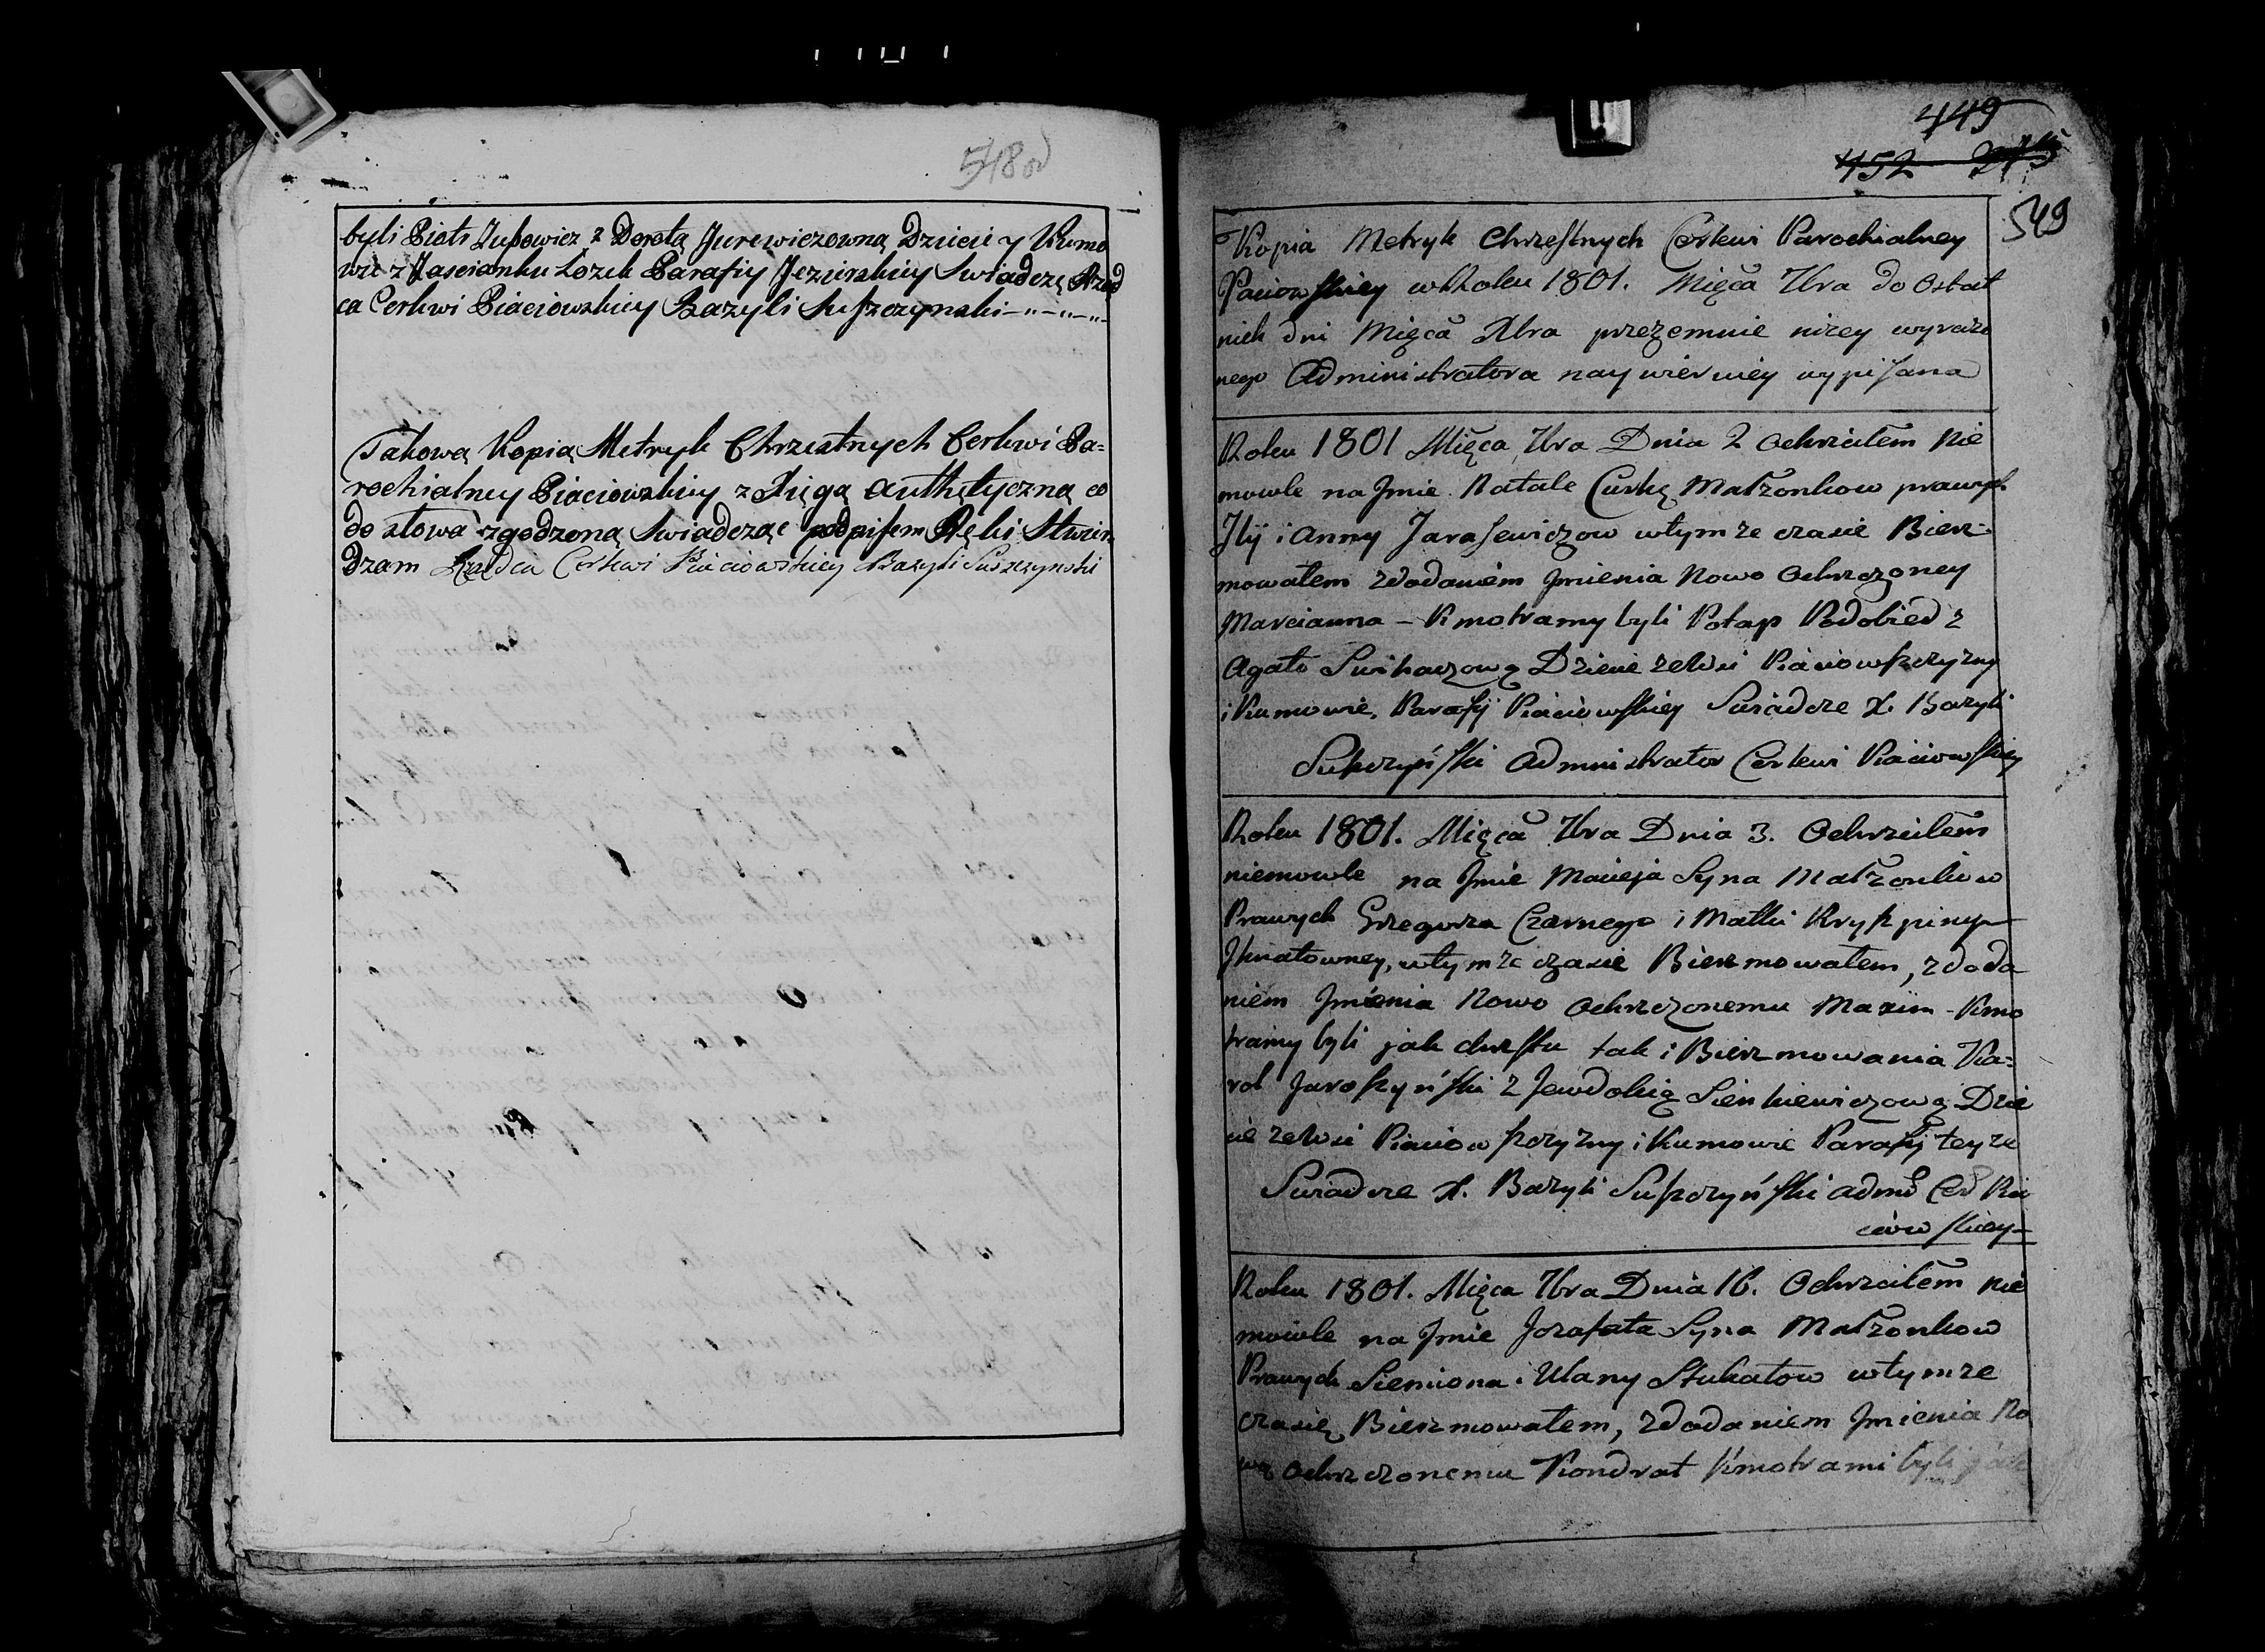 548 od
byli Piotr Zubowicz z Dorotą Jurewiczowną Dziecie y Kumo
wie z Zascianku Lozek Parafiy Jezierskiey Swiadczę Rząd
ca Cerkwi Piaciowskiey Bazyli Suszczynski
Takową Kopią Metryk Chrzestnych Cerkwi Pa=
rochialney Piaciowskiey z Xięgą authętyczną co
do słowa zgodzoną Swiadcząc podpisem Ręki Stwier
dzam Rządca Cerkwi Piaciowskiey Bazyli Suszczynski
449
452
549
Kopia Metryk Chrzestnych Cerkwi Parochialney
Paciowskiey w Roku 1801. Mięca 7bra do Ostat
nich dni Mięca Xbra przezemnie niżey wyrażo
nego Administratora naywierniey wypisana
Roku 1801 Mięca 7bra Dnia 2 Ochrzciłem Nie
mowle na Jmie Natale Curkę Małżonkow prawych
Jlij i Anny Jarasewiczow wtymże czasie Bierz=
mowałem zdodaniem Jmienia Nowo Ochrzczoney
Marcianna – Kmotramy byli Potap Podobied z
Agato Swikaczową Dziecie ze Wsi Piaciowszczyzny
i Kumowie, Parafij Piaciowskiey Swiadcze X. Bazyli
Suszczyński Administrator Cerkwi Piaciowskiey
Roku 1801. Mięca 7bra Dnia 3. Ochrzciłem
niemowle na Jmie Macieja Syna Małżonkow
Prawych Grzegorza Czarnego i Matki Kryszpiny
Jknatowney, wtymże czasie Bierzmowałem, zdoda
niem Jmienia Nowo Ochrzczonemu Maxim - Kmo
tramy byli jak chrztu tak i Bierzmowania Ka=
rol Jaroszyński z Jewdokią Sienkiewiczową Dzie
cie ze Wsi Piaciowszczyzny i Kumowie Parafij teyże
Swiadcze X. Bazyli Suszczyński adm̄r Cer̄ Pia
ciowskiey
Roku 1801. Mięca 7bra Dnia 16. Ochrzciłem Nie
mowle na Jmie Jozafata Syna Małżonkow
Prawych Siemiona i Ulany Stukałow wtymże
czasię Bierzmowałem, zdodaniem Jmienia No
wo Ochrzczonemu Kondrat Kmotrami byli